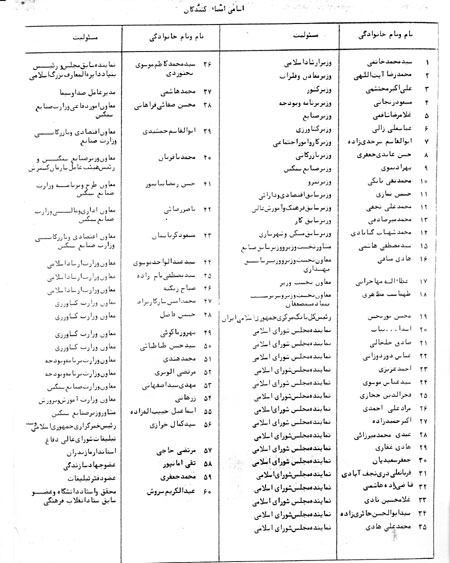 اسامی امضاء کنندگان
نام ونام خانوادگی مسئولیت
۱ سیدمحمدخاتمی وزیرارشاداسلامی
۲ محمدرضا آیت‌اللهی وزیرمعادن وفلزات
۳ علی‌اکبرمحتشمی وزیرکشور
۴ مسعودزنجانی وزیربرنامه وبودجه
۵ غلامرضاشافعی وزیرصنایع
۶ عباسعلی زالی وزیرکشاورزی
۷ ابوالقاسم سرحدی‌زاده وزیرکاروامور اجتماعی
۸ حسن عابدی‌جعفری وزیربازرگانی
۹ بهزادنبوی وزیرصنایع سنگین
۱۰ محمدتقی بانکی وزیرنیرو
۱۱ حسین نمازی وزیرسابق اقتصادی ودارائی
۱۲ محمدعلی نجفی وزیرسابق فرهنگ وآموزش عالی
۱۳ محمدمیرصادقی وزیرسابق کار
۱۴ محمدشهاب گنابادی وزیرسابق مسکن وشهرسازی
۱۵ سیدمصطفی هاشمی مشاورنخست وزیرووزیرسابق صنایع
۱۶ هادی منافی معاون نخست وزیرووزیرسابق بهداری
۱۷ عطاءاله مهاجرانی معاون نخست وزیر
۱۸ طهماسب مظاهری معاون نخست وزیروسرپرست بنیادمستضعفان
۱۹ محسن نوربخش رئیس کل بانک مرکزی جمهوری اسلامی ایران
۲۰ اسداله بیات نماینده مجلس شورای اسلامی
۲۱ صادق خلخالی نماینده مجلس شورای اسلامی
۲۲ عباس دوزدوزانی نماینده مجلس شورای اسلامی
۲۳ احمدعزیزی نماینده مجلس شورای اسلامی
۲۴ سیدعباس موسوی نماینده مجلس شورای اسلامی
۲۵ فخرالدین حجازی نماینده مجلس شورای اسلامی
۲۶ مرادعلی احمدی نماینده مجلس شورای اسلامی
۲۷ اکبرحمیدزاده نماینده مجلس شورای اسلامی
۲۸ محمدمیرزائی نماینده مجلس شورای اسلامی
۲۹ هادی غفاری نماینده مجلس شورای اسلامی
۳۰ جعفرسعیدیان نماینده مجلس شورای اسلامی
۳۱ قربانعلی دری‌نجف آبادی نماینده مجلس شورای اسلامی
۳۲ هاشمی نماینده مجلس شورای اسلامی
۳۳ غلامحسین نادی نماینده مجلس شورای اسلامی
۳۴ سیدابوالحسن حائری‌زاده نماینده مجلس شورای اسلامی
۳۵ محمدعلی هادی نماینده مجلس شورای اسلامی
نام ونام خانوادگی مسئولیت
۳۶ سیدمحمدکاظم موسوی بجنوردی نماینده سابق مجلس ورئیس بنیاددایرة‌المعارف بزرگ اسلامی
۳۷ محمدهاشمی مدیرعامل صداوسیما
۳۸ محسن صفائی‌فراهانی معاون اموردفاعی وزارت صنایع سنگین
۳۹ ابوالقاسم جمشیدی معاون اقتصادی وبازرگانی وزارت صنایع
۴۰ محمدباقریان معاون وزیرصنایع سنگین و رئیس هیئت عامل سازمان گسترش
۴۱ حسن رضا معاون طرح وبرنامه وزارت صنایع سنگین
۴۲ ناصررضائی معاون اداری ومالی وزارت صنایع سنگین
۴۳ مسعودکرباسیان معاون اقتصادی وبازرگانی وزارت صنایع سنگین
۴۴ سیدعبدالواحدموسوی معاون وزارت ارشاداسلامی
۴۵ سیدمصطفی زاده معاون وزارت ارشاداسلامی
۴۶ صباح زنگنه معاون وزارت ارشاداسلامی
۴۷ محمدامین سازگارنژاد معاون وزارت کشاورزی
۴۸ حسین فاضل معاون وزارت کشاورزی
۴۹ بهروزباکوئی معاون وزارت کشاورزی
۵۰ سیدحسن طباطبائی معاون وزارت کشاورزی
۵۱ محمدهندی معاون وزارت برنامه وبودجه
۵۲ مرتضی الویری معاون وزارت برنامه وبودجه
۵۳ مهدی سیداصفهانی معاون وزارت صنایع سنگین
۵۴ زرهانی معاون وزارت آموزش وپرورش
۵۵ اسماعیل حبیب‌اله‌زاده مشاوروزیرصنایع سنگین
۵۶ سیدکمال خرازی رئیس خبرگزاری جمهوری اسلامی تبلیغات شورای عالی دفاع
۵۷ مرتضی حاجی استاندارمازندران
۵۸ تقی امانپور عضوجهادسازندگی
۵۹ محمدجعفری عضودفترتبلیغات
۶۰ عبدالکریم سروش محقق واستاددانشگاه وعضو سابق ستادانقلاب فرهنگی